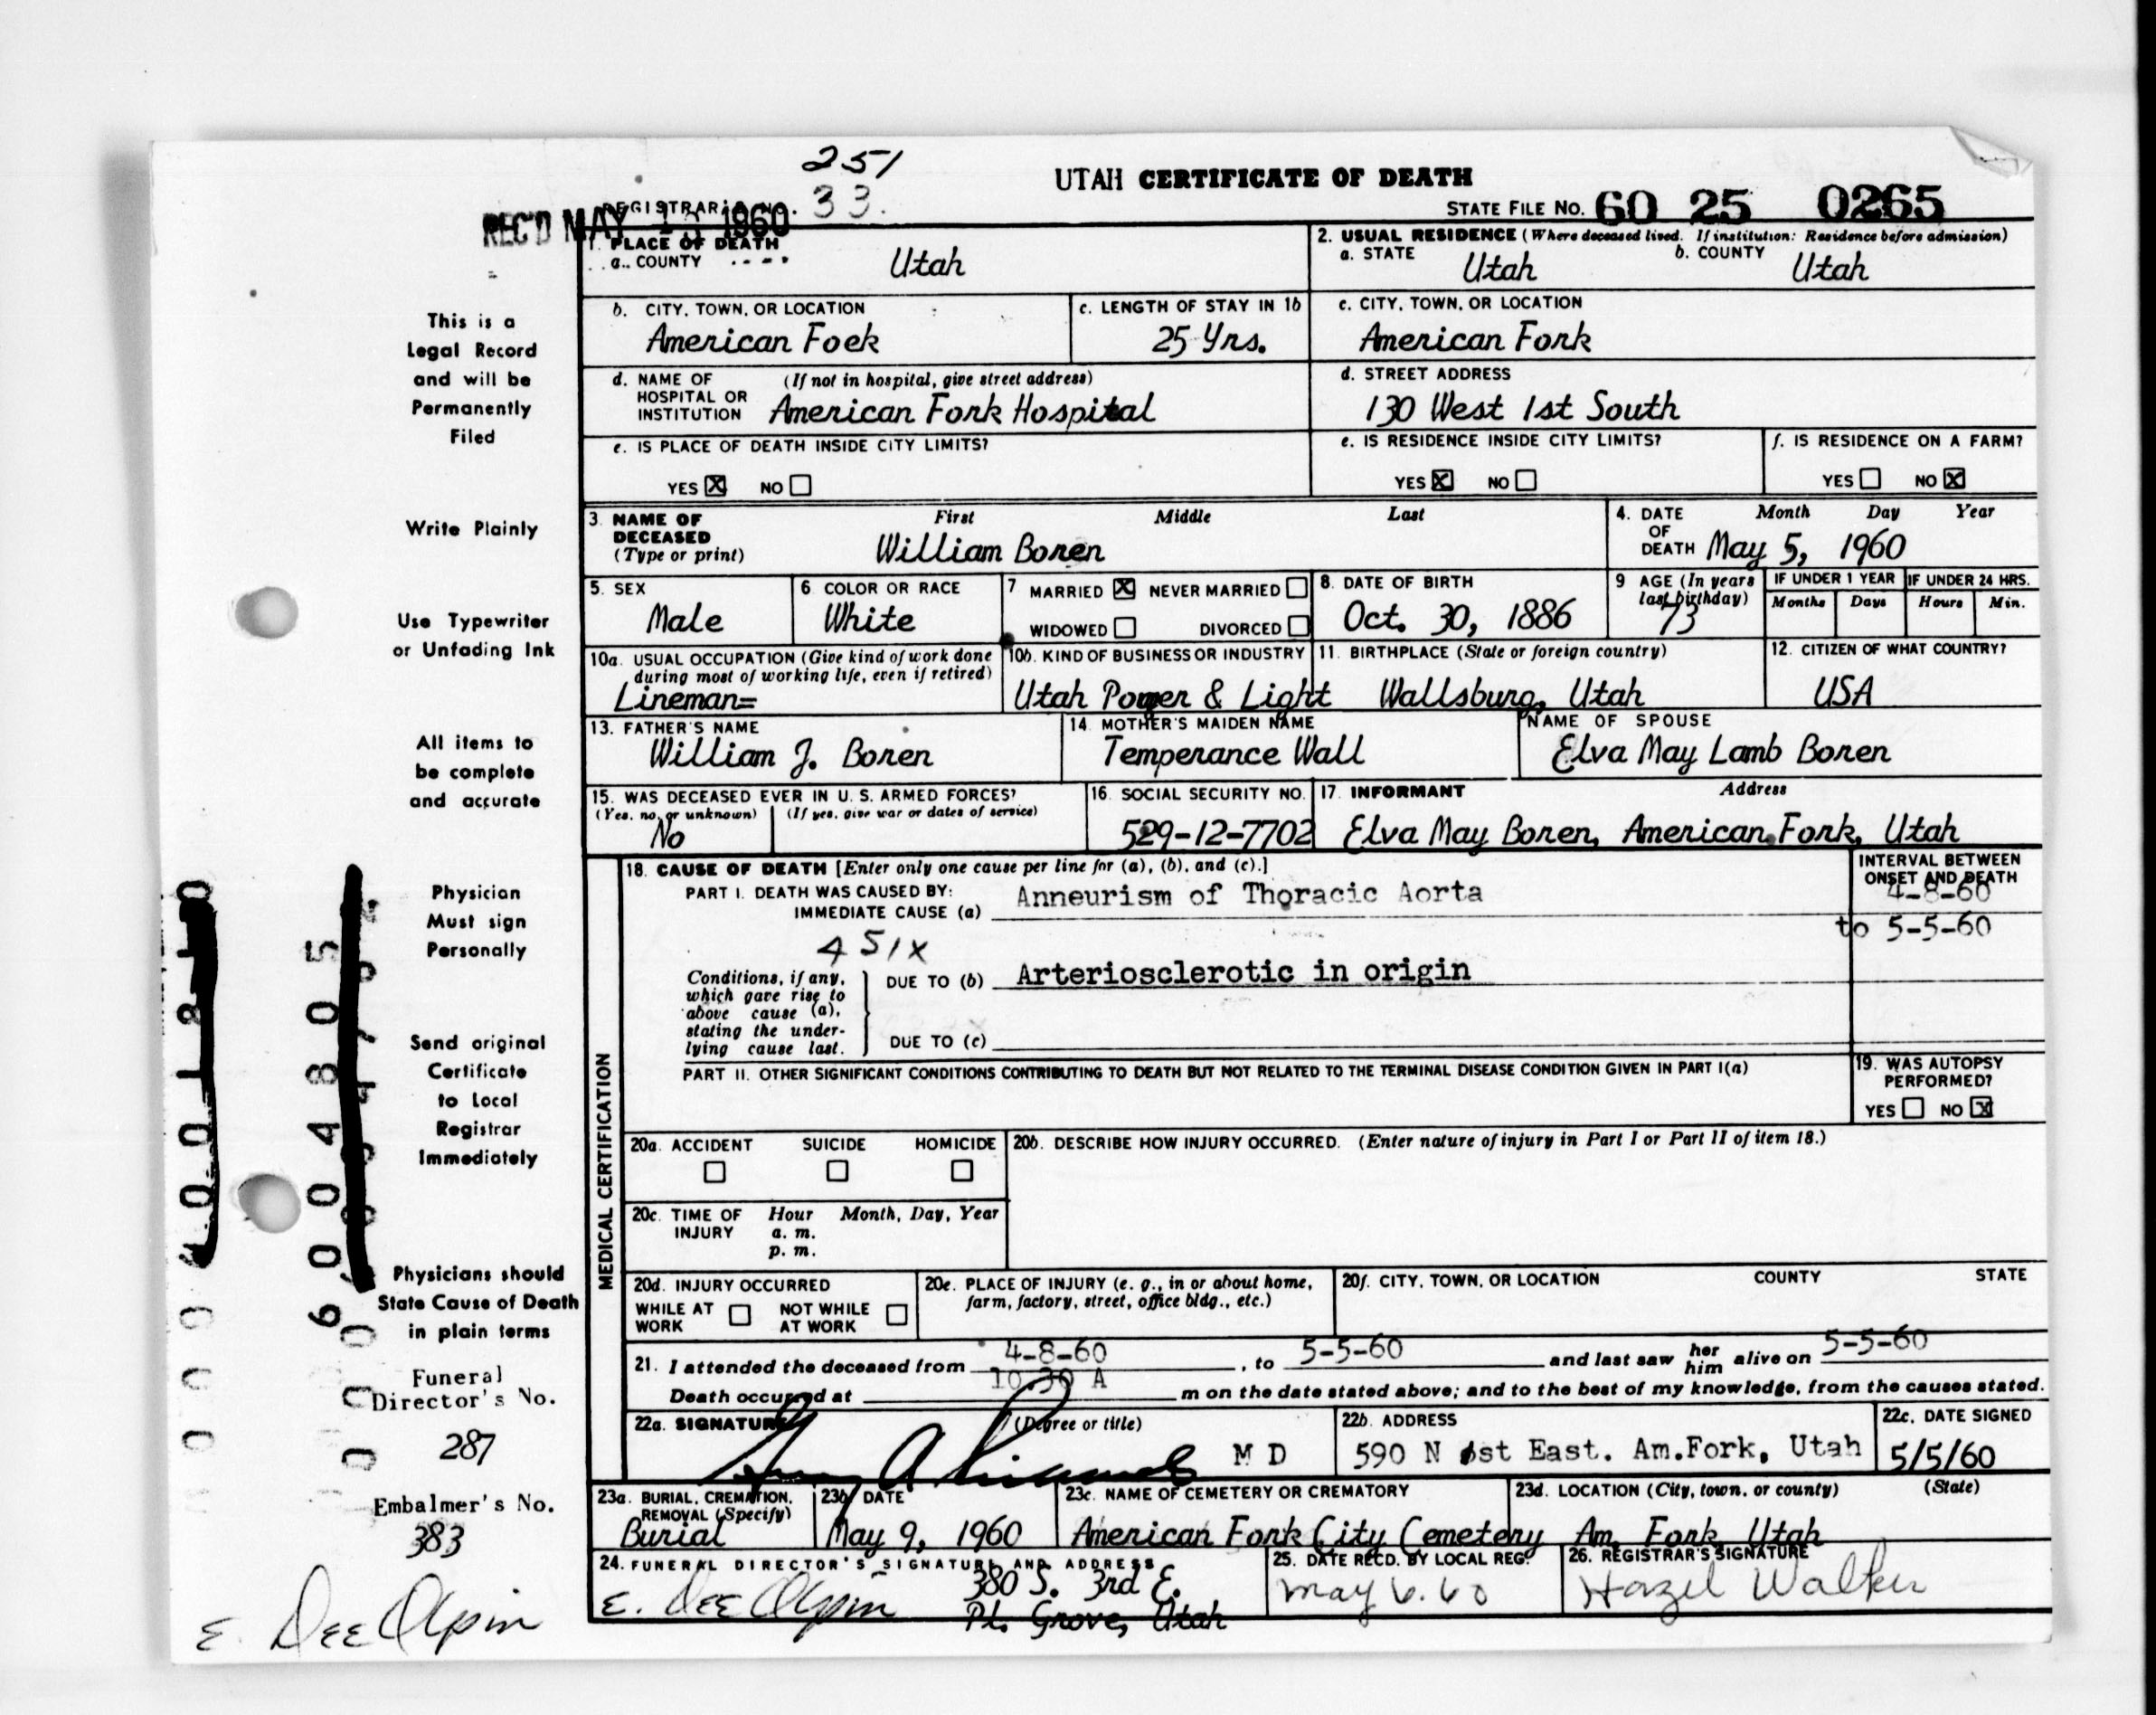 251
UTAH CERTIFICATE OF DEATH
REGISTRAR'S NO. 33.
STATE FILE NO. 60 25 0265
REC'D MAY 1960
1. PLACE OF DEATH
a. COUNTY Utah
2. USUAL RESIDENCE (Where deceased lived. If institution: Residence before admission)
a. STATE Utah b. COUNTY Utah
This is a
Legal Record
and will be
Permanently
Filed
b. CITY, TOWN, OR LOCATION
American Foek
c. LENGTH OF STAY IN 1b
25 Yrs.
c. CITY, TOWN, OR LOCATION
American Fork
d. NAME OF HOSPITAL OR INSTITUTION (If not in hospital, give street address)
American Fork Hospital
d. STREET ADDRESS
130 West 1st South
e. IS PLACE OF DEATH INSIDE CITY LIMITS?
YES ☒ NO ☐
e. IS RESIDENCE INSIDE CITY LIMITS?
YES ☒ NO ☐
f. IS RESIDENCE ON A FARM?
YES ☐ NO ☒
Write Plainly
3. NAME OF DECEASED (Type or print)
First Middle Last
William Boren
4. DATE OF DEATH Month Day Year
May 5, 1960
Use Typewriter
or Unfading Ink
5. SEX
Male
6 COLOR OR RACE
White
7 MARRIED ☒ NEVER MARRIED ☐
WIDOWED ☐ DIVORCED ☐
8. DATE OF BIRTH
Oct. 30, 1886
9 AGE (In years last birthday)
73
IF UNDER 1 YEAR
Months Days
IF UNDER 24 HRS.
Hours Min.
10a. USUAL OCCUPATION (Give kind of work done during most of working life, even if retired)
Lineman=
10b. KIND OF BUSINESS OR INDUSTRY
Utah Power & Light
11. BIRTHPLACE (State or foreign country)
Wallsburg, Utah
12. CITIZEN OF WHAT COUNTRY?
USA
All items to
be complete
and accurate
13. FATHER'S NAME
William J. Boren
14 MOTHER'S MAIDEN NAME
Temperance Wall
NAME OF SPOUSE
Elva May Lamb Boren
15. WAS DECEASED EVER IN U.S. ARMED FORCES?
(Yes, no, or unknown) (If yes, give war or dates of service)
No
16. SOCIAL SECURITY NO.
529-12-7702
17. INFORMANT Address
Elva May Boren, American Fork, Utah
Physician
Must sign
Personally
MEDICAL CERTIFICATION
18. CAUSE OF DEATH [Enter only one cause per line for (a), (b), and (c).]
PART I. DEATH WAS CAUSED BY:
IMMEDIATE CAUSE (a) Anneurism of Thoracic Aorta
INTERVAL BETWEEN ONSET AND DEATH
4-8-60
to 5-5-60
451X
Conditions, if any, which gave rise to above cause (a), stating the underlying cause last.
DUE TO (b) Arteriosclerotic in origin
DUE TO (c)
60 04805
Send original
Certificate
to Local
Registrar
Immediately
PART II. OTHER SIGNIFICANT CONDITIONS CONTRIBUTING TO DEATH BUT NOT RELATED TO THE TERMINAL DISEASE CONDITION GIVEN IN PART I(a)
19. WAS AUTOPSY PERFORMED?
YES ☐ NO ☒
20a. ACCIDENT ☐ SUICIDE ☐ HOMICIDE ☐
20b. DESCRIBE HOW INJURY OCCURRED. (Enter nature of injury in Part I or Part II of item 18.)
20c. TIME OF INJURY Hour Month, Day, Year
a. m.
p. m.
Physicians should
State Cause of Death
in plain terms
20d. INJURY OCCURRED
WHILE AT WORK ☐ NOT WHILE AT WORK ☐
20e. PLACE OF INJURY (e. g., in or about home, farm, factory, street, office bldg., etc.)
20f. CITY, TOWN, OR LOCATION COUNTY STATE
21. I attended the deceased from 4-8-60, to 5-5-60 and last saw her him alive on 5-5-60
Death occurred at 10.30 A m on the date stated above; and to the best of my knowledge, from the causes stated.
Funeral
Director's No.
287
22a. SIGNATURE (Degree or title)
M D
22b. ADDRESS
590 N 1st East. Am.Fork, Utah
22c. DATE SIGNED
5/5/60
Embalmer's No.
383
23a. BURIAL, CREMATION, REMOVAL (Specify)
Burial
23b. DATE
May 9, 1960
23c. NAME OF CEMETERY OR CREMATORY
American Fork City Cemetery
23d. LOCATION (City, town, or county) (State)
Am. Fork, Utah
24. FUNERAL DIRECTOR'S SIGNATURE AND ADDRESS
E. Dee Olpin 380 S. 3rd E.
Pl. Grove, Utah
25. DATE RECD. BY LOCAL REG.
May 6.60
26. REGISTRAR'S SIGNATURE
Hazel Walker
E. Dee Olpin